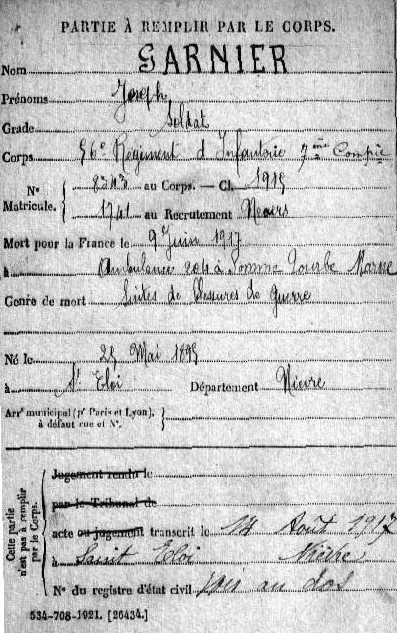 PARTIE À REMPLIR PAR LE CORPS.
Nom GARNIER
Prénoms Joseph
Grade Soldat
Corps 56e Régiment d'Infanterie 7ème Compie
N° Matricule. { 8343 au Corps. — Cl. 1915
1741 au Recrutement Nevers
Mort pour la France le 9 Juin 1917
à Ambulance 204 à Somme Tourbe Marne
Genre de mort Suites de Blessures de Guerre
Né le Mai 1895
à St Eloi Département Nièvre
Arrt municipal (pr Paris et Lyon), à défaut rue et N°. }
Cette partie n'est pas à remplir par le Corps.
Jugement rendu le
par le Tribunal de
acte ou jugement transcrit le 14 Août 1917
à Saint Eloi Nièvre
N° du registre d'état civil au dos
534-708-1921. [26434.]